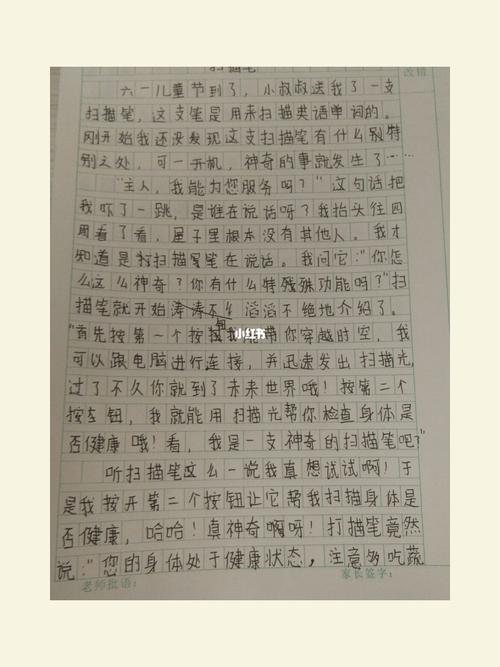 扫描笔
改错
六一儿童节到了，小叔叔送我了一支
扫描笔，这支笔是用来扫描英语单词的。
刚开始我还没发现这支扫描笔有什么别特
别之处，可一开机，神奇的事就发生了……
"主人，我能为您服务吗？"这句话把
我吓了一跳，是谁在说话呀？我抬头往四
周看了看，屋子里根本没有其他人。我才
知道是扫描笔在说话。我问它："你怎
么这么神奇？你有什么特殊功能吗？"扫
描笔就开始滔滔不绝地介绍了。
"首先按第一个按钮我能带你穿越时空，我
小红书
可以跟电脑进行连接，并迅速发出扫描光，
过了不久你就到了未来世界哦！按第二个
按钮，我就能用扫描光帮你检查身体是
否健康哦！看，我是一支神奇的扫描笔吧？"
听扫描笔这么一说我真想试试啊！于
是我按开第二个按钮让它帮我扫描身体是
否健康，哈哈！真神奇啊呀！打描笔竟然
说："您的身体处于健康状态，注意多吃蔬
老师批语：
家长签字：